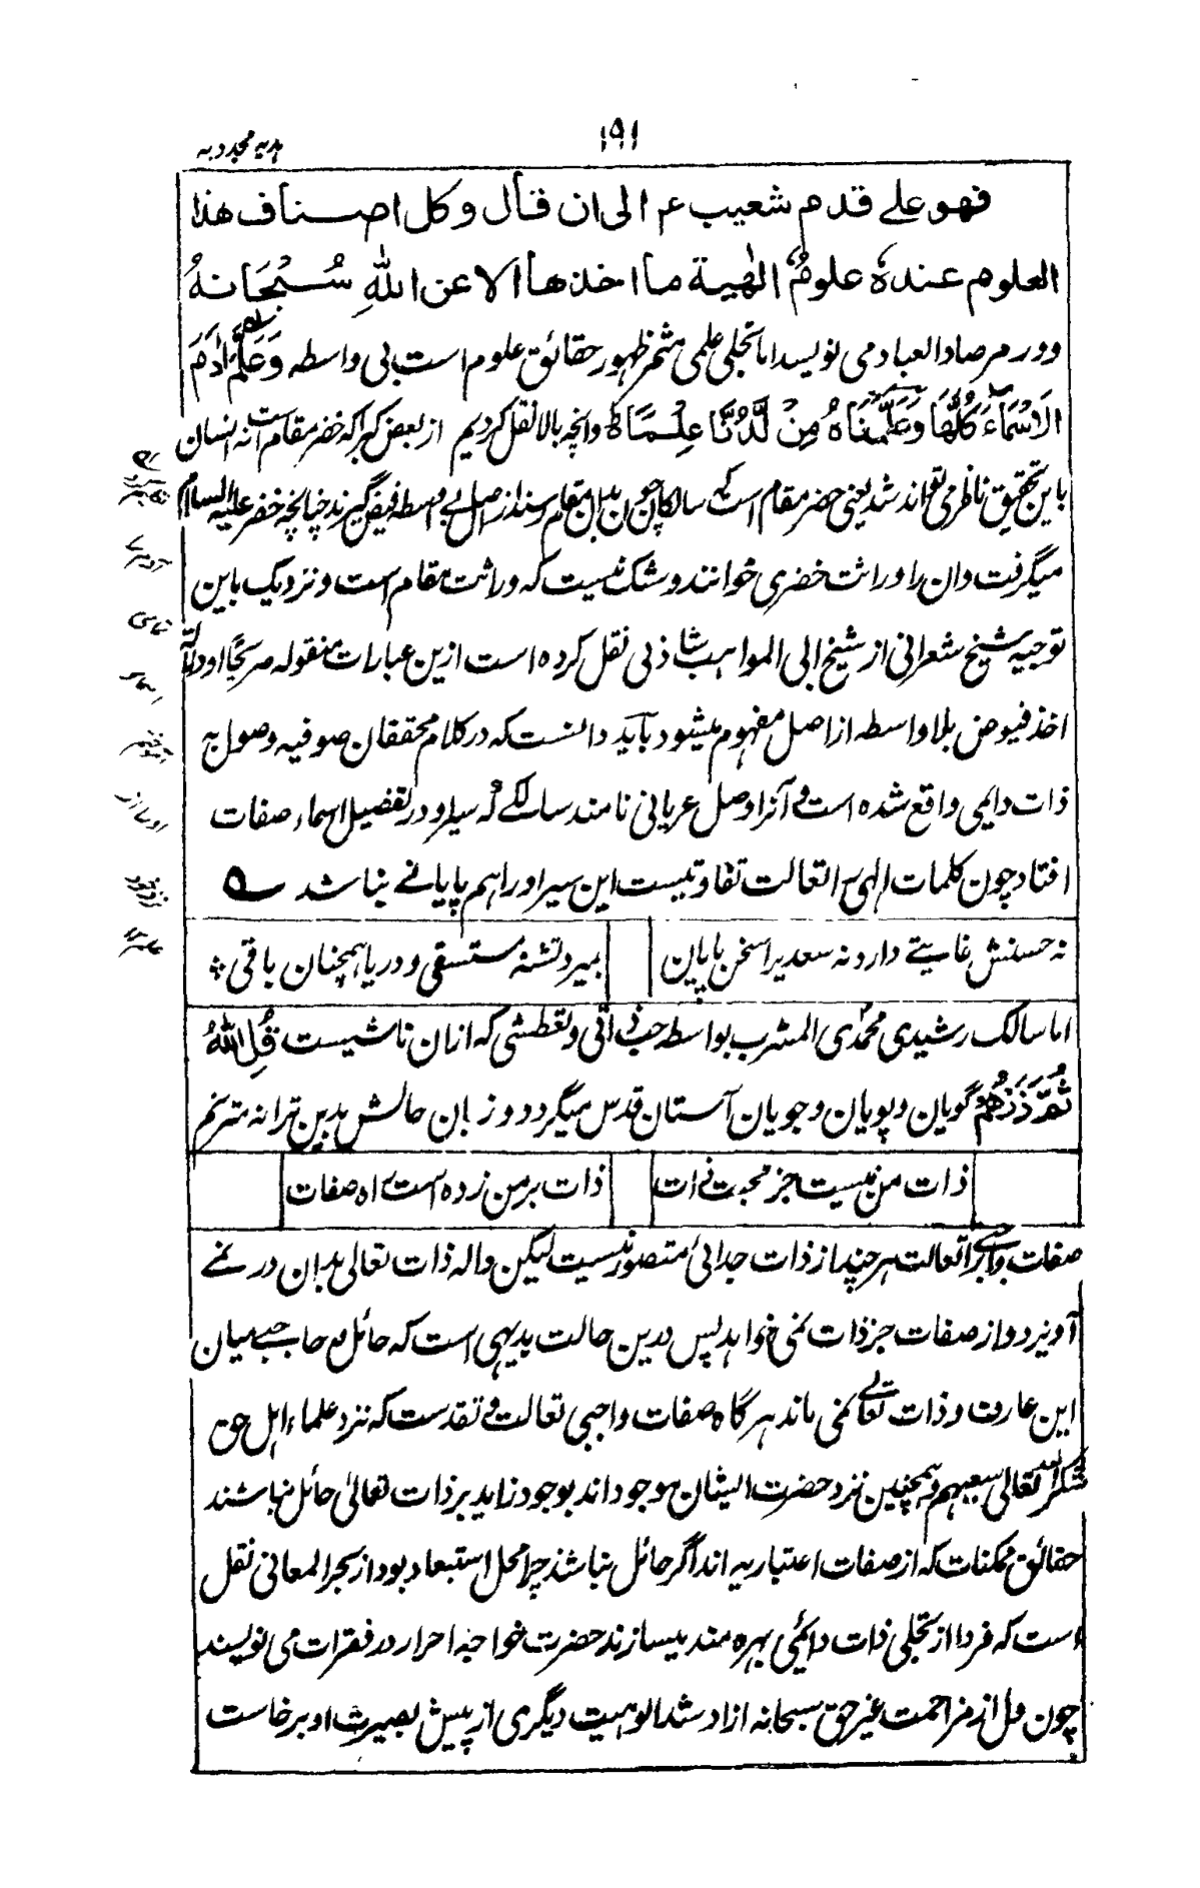 ۱۹۱
هدیه مجددیه
فهو علے قدم شعیب ع الی ان قال وکل اصناف هذا
العلوم عنده علومٌ الٰهیة ما اخذها الا عن اللهِ سُبْحَانهُ
ودر مرصاد العباد می نویسد اما تجلی علمی مثمر ظهور حقائق علوم است بی واسطه وَعَلَّمَ اٰدَمَ
الْاَسْمَآءَ کُلَّهَا وَعَلَّمْنَاهُ مِنْ لَّدُنَّا عِلْمًا ط وانچه بالا نقل کردیم از بعض کبرا که خضر مقام است نه انسان
باین تحقیق ناظر می تواند شد یعنی خضر مقام است که سالکان چون باین مقام رسند از اصل بے واسطه فیض گیرند چنانچه خضر علیه السلام
میگرفت وان را وراثت خضری خوانند و شک نیست که وراثت مقام است و نزدیک باین
توجیه شیخ شعرانی از شیخ ابی المواهب شاذلی نقل کرده است ازین عبارات منقوله صریحًا او دلالةً
اخذ فیوض بلا واسطه از اصل مفهوم میشود باید دانست که در کلام محققان صوفیه وصول به
ذات دایمی واقع شده است و آنرا وصل عریانی نامند سالکے که سیر او در تفصیل اسماء صفات
افتاد چون کلمات الهی را تعالت تفاوتیست این سیر او را هم پایانے نباشد ۵
نه حسنش غایتے دارد نه سعدی را سخن پایان بمیرد تشنه مستسقی و دریا همچنان باقی
اما سالک رشیدی محمدی المشرب بواسطه جذب ذاتی و تعطشی که از ان ناشیست قُلِ اللهُ
ثُمَّ ذَرْهُمْ گویان و پویان و جویان آستان قدس میگردد و زبان حالش بدین ترانه مترنم
ذات من نیست جز محبت ذات ذات بر من زده است راه صفات
صفات واجبی تعالت هر چند از ذات جدائی متصور نیست لیکن واله ذات تعالی بدان در نمے
آویزد و از صفات جز ذات نمی خواهد پس درین حالت بدیهی است که حائل و حاجبے میان
این عارف و ذات تعالے نمی ماند هر گاه صفات واجبی تعالت و تقدست که نزد علماء اهل حق
شکر الله تعالی سعیهم و همچنین نزد حضرت ایشان موجود اند بوجود زاید بر ذات تعالی حائل نباشند
حقائق ممکنات که از صفات اعتباریه اند اگر حائل نباشند چرا محل استبعاد بود از بحر المعانی نقل
است که فردا از تجلی ذات دایمی بهره مند میسازند حضرت خواجه احرار در فقرات می نویسند
چون دل از مزاحمت غیر حق سبحانه ازاد شد الوهیت دیگری از پیش بصیرت او برخاست